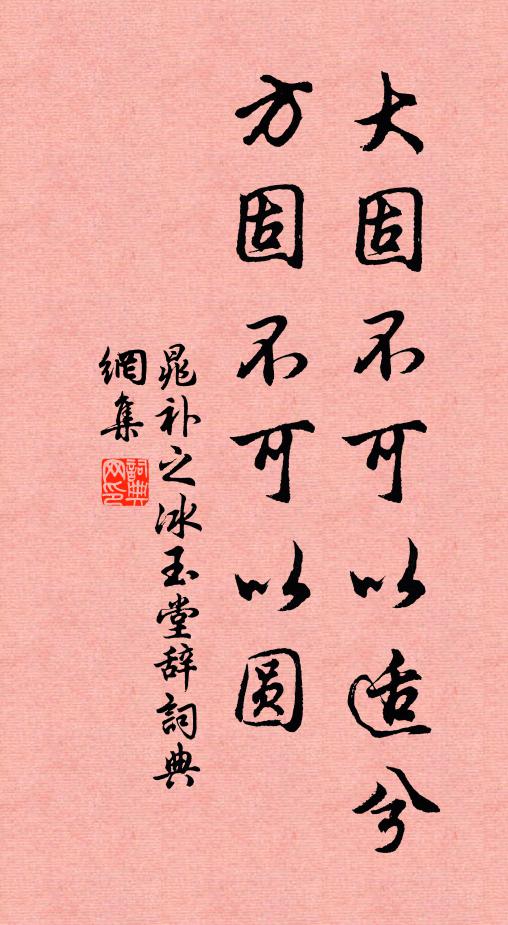 大固不可以适兮
方固不可以圆
晁补之冰玉堂辞詞典
網集
詞典
网印